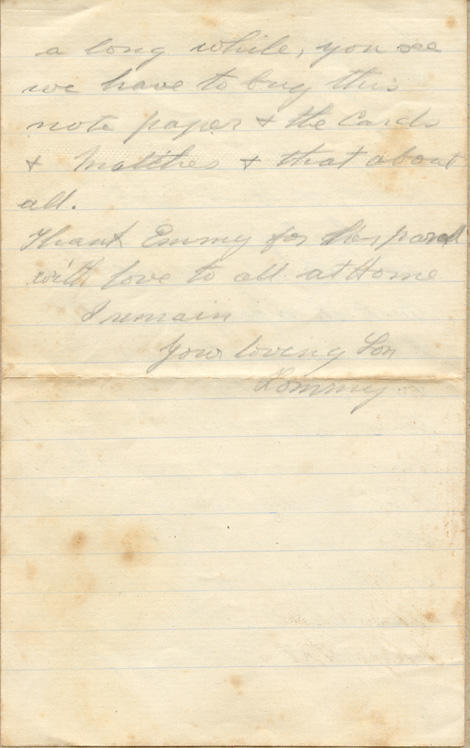 a long while, you see
we have to buy this
note paper & the Cards
& Matches & that about
all.
Thank Emmy for her
with love to all at Home
I remain
Your loving Son
Tommy